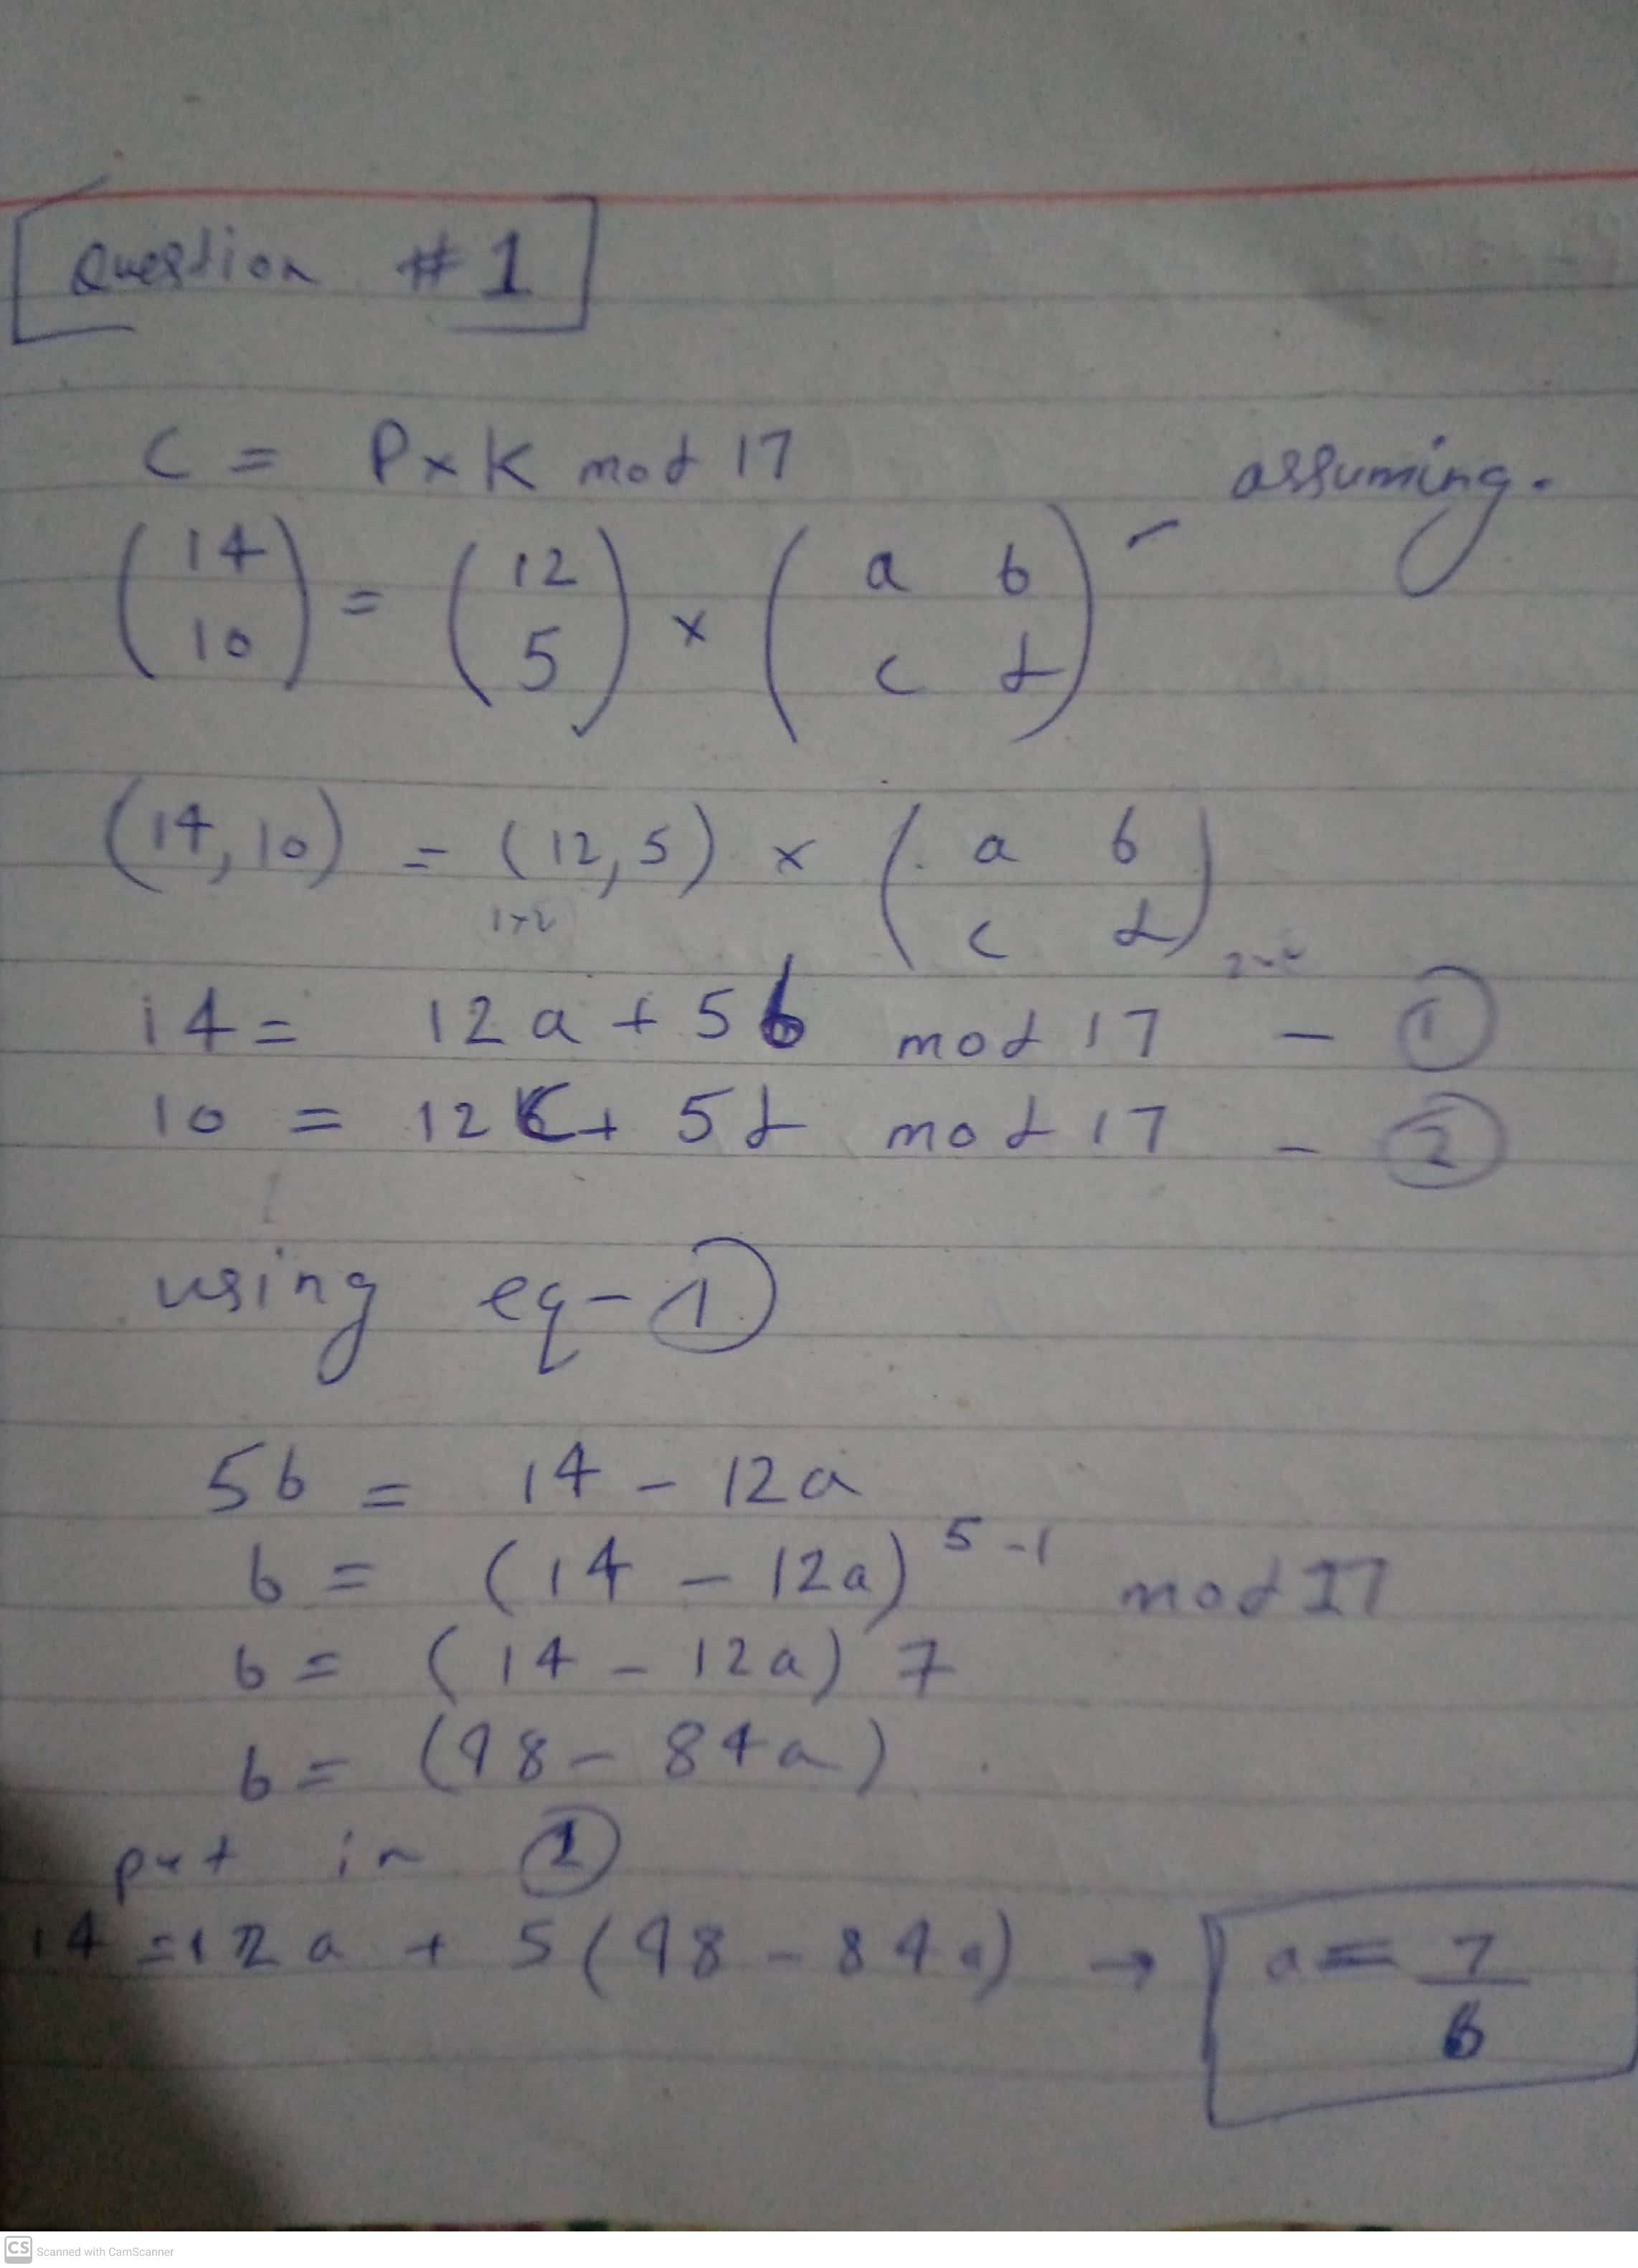 Question #1
C = P×K mod 17
assuming.
(14 10) = (12 5) × (a b c d) -
(14,10) = (12,5) × (a b c d)
1×2
14 = 12a + 5b mod 17 - ①
10 = 12c + 5d mod 17 - ②
using eq-①
5b = 14 - 12a
b = (14 - 12a) 5-1 mod 17
b = (14 - 12a) 7
b = (98 - 84a)
put in ①
14 = 12a + 5(98 - 84a) → a = 7/6
CS Scanned with CamScanner